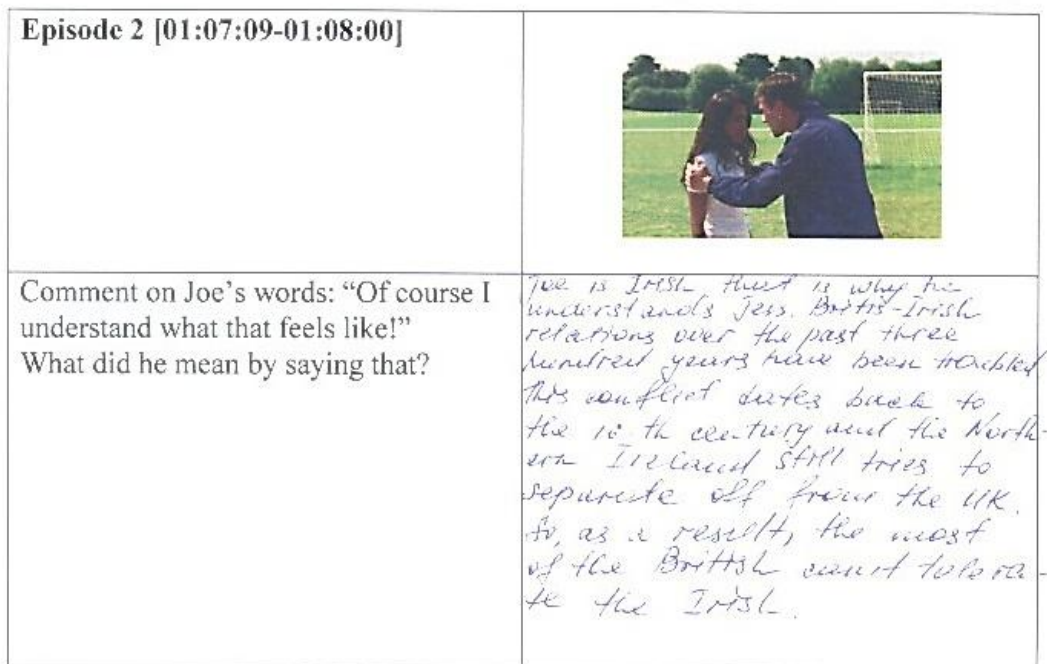 Episode 2 [01:07:09-01:08:00]
Comment on Joe's words: "Of course I
understand what that feels like!"
What did he mean by saying that?
Joe is Irish that is why he
understands Jess. Britis-Irish
relations over the past three
hundred years have been troubled
this conflict dates back to
the th century and the North-
ern Ireland still tries to
separate off from the UK.
So, as a result, the most
of the Brittish can't tolera-
te the Irish.